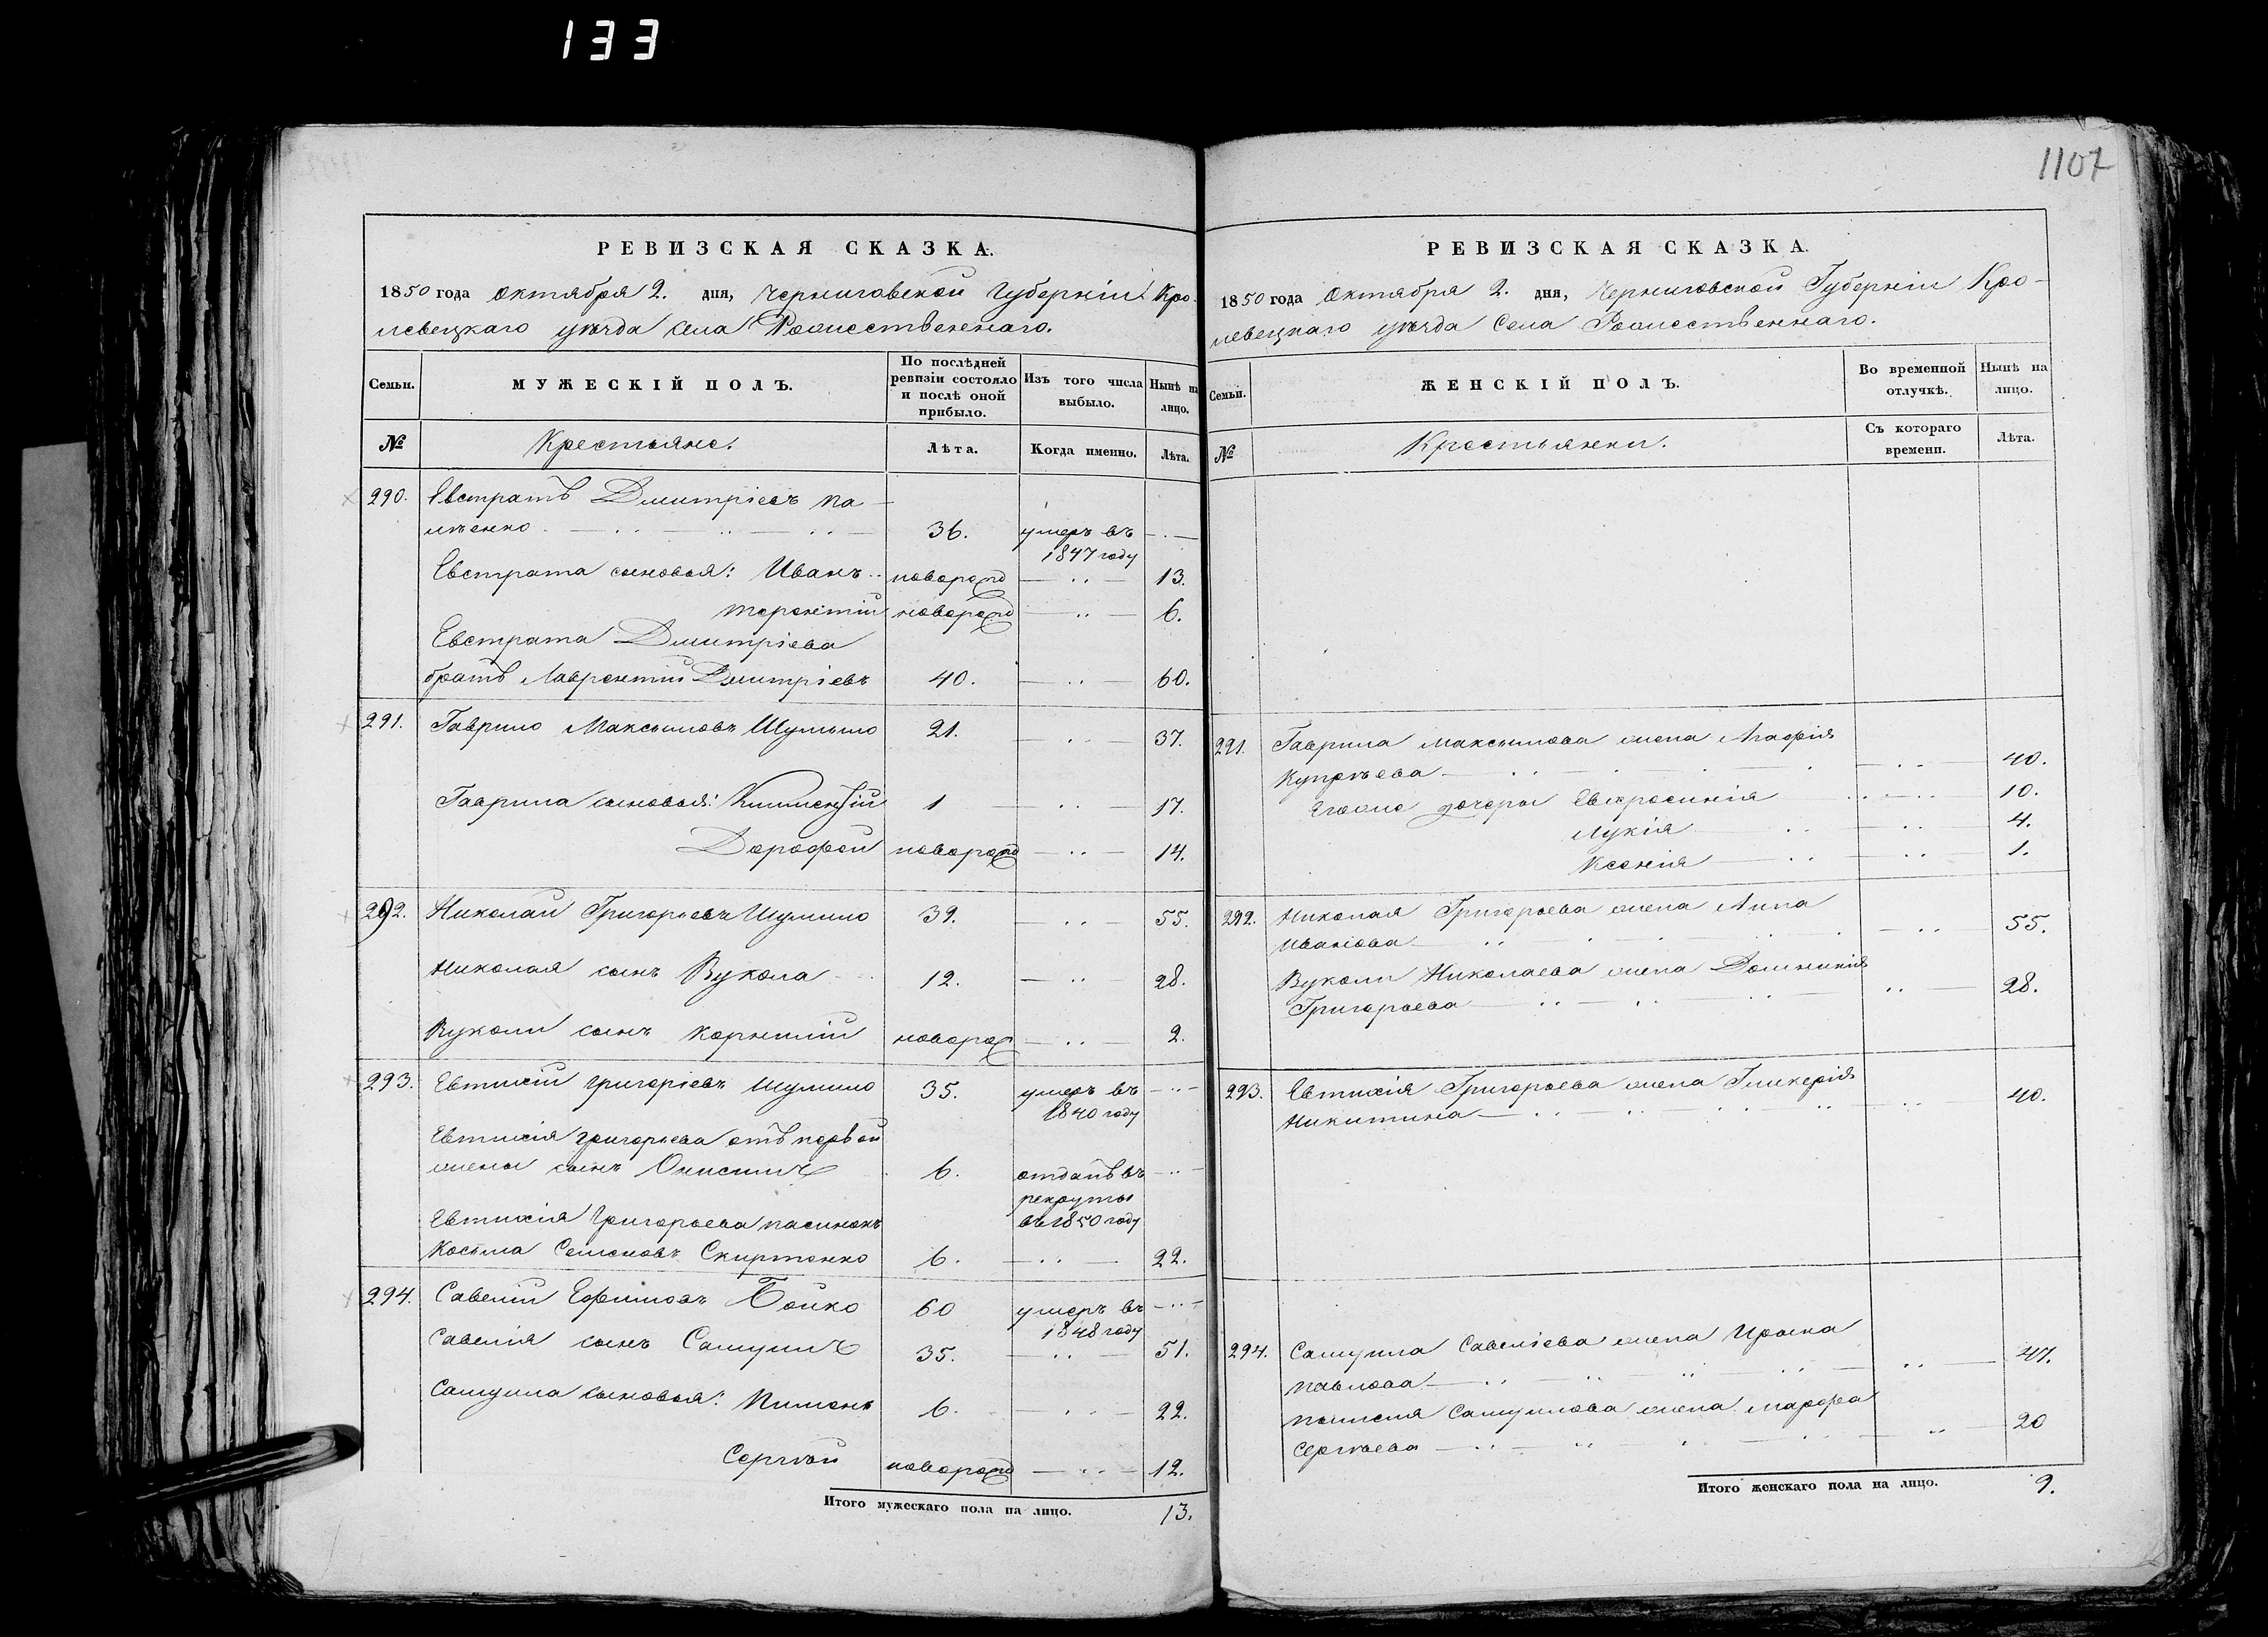 133
1107
РЕВИЗСКАЯ СКАЗКА.
1850 года Октября 2. дня, Черниговской Губерніи Кро-
левецкаго уѣзда села Рождественскаго.
Семьи.
МУЖЕСКІЙ ПОЛЪ.
По послѣдней ревизіи состояло и послѣ оной прибыло.
Изъ того числа выбыло.
Нынѣ на лицо.
№
Крестьяне.
Лѣта.
Когда именно.
Лѣта.
290. Евстратъ Дмитріевъ
36. умеръ въ
1847 году
Евстрата сыновья: Иванъ новорожд 13.
Терентій новорожд 6.
Евстрата Дмитріева
братъ Лаврентій Дмитріевъ 40. 60.
291. Гаврило Максимовъ Шумило 21. 37.
Гаврила сыновья: 1 17.
Дорофей новорожд 14.
292. Николай Григорьевъ Шумило 39. 55.
Николая сынъ Вукола 12. 28.
Вуколы сынъ Корнилій новорож 2.
293. Евтихій Григоріевъ Шумило 35. умеръ въ
1840 году
Евтихія Григорьева отъ первой
жены сынъ Онисимъ 6. отданъ въ
рекруты
въ 1850 году
Евтихія Григорьева пасинокъ
Косьма Семеновъ Скиртенко 6. 22.
294. Савелій Ефимовъ Бойко 60 умеръ въ
1848 году
Савелія сынъ Самуилъ 35. 51.
Самуила сыновья: Пименъ 6. 22.
Сергѣй новорожд 12.
Итого мужескаго пола на лицо. 13.
РЕВИЗСКАЯ СКАЗКА.
1850 года Октября 2. дня, Черниговской Губерніи Кро-
левецкаго уѣзда Села Рождественскаго.
Семьи.
ЖЕНСКІЙ ПОЛЪ.
Во временной отлучкѣ.
Нынѣ на лицо.
№
Крестьянки.
Съ котораго времени.
Лѣта.
291. Гаврила Максимова жена Агафія
40.
Егоже дочери Евфросинія 10.
Лукія 4.
Ксенія 1.
292. Николая Григорьева жена Анна
Иванова 55.
Вуколы Николаева жена Домникія
Григорьева 28.
293. Евтихія Григорьева жена Гликерія
Никитина 40.
294. Самуила Савеліева жена Ирина
Павлова 47.
Пимена Самуилова жена Марфа
Сергѣева 20
Итого женскаго пола на лицо. 9.